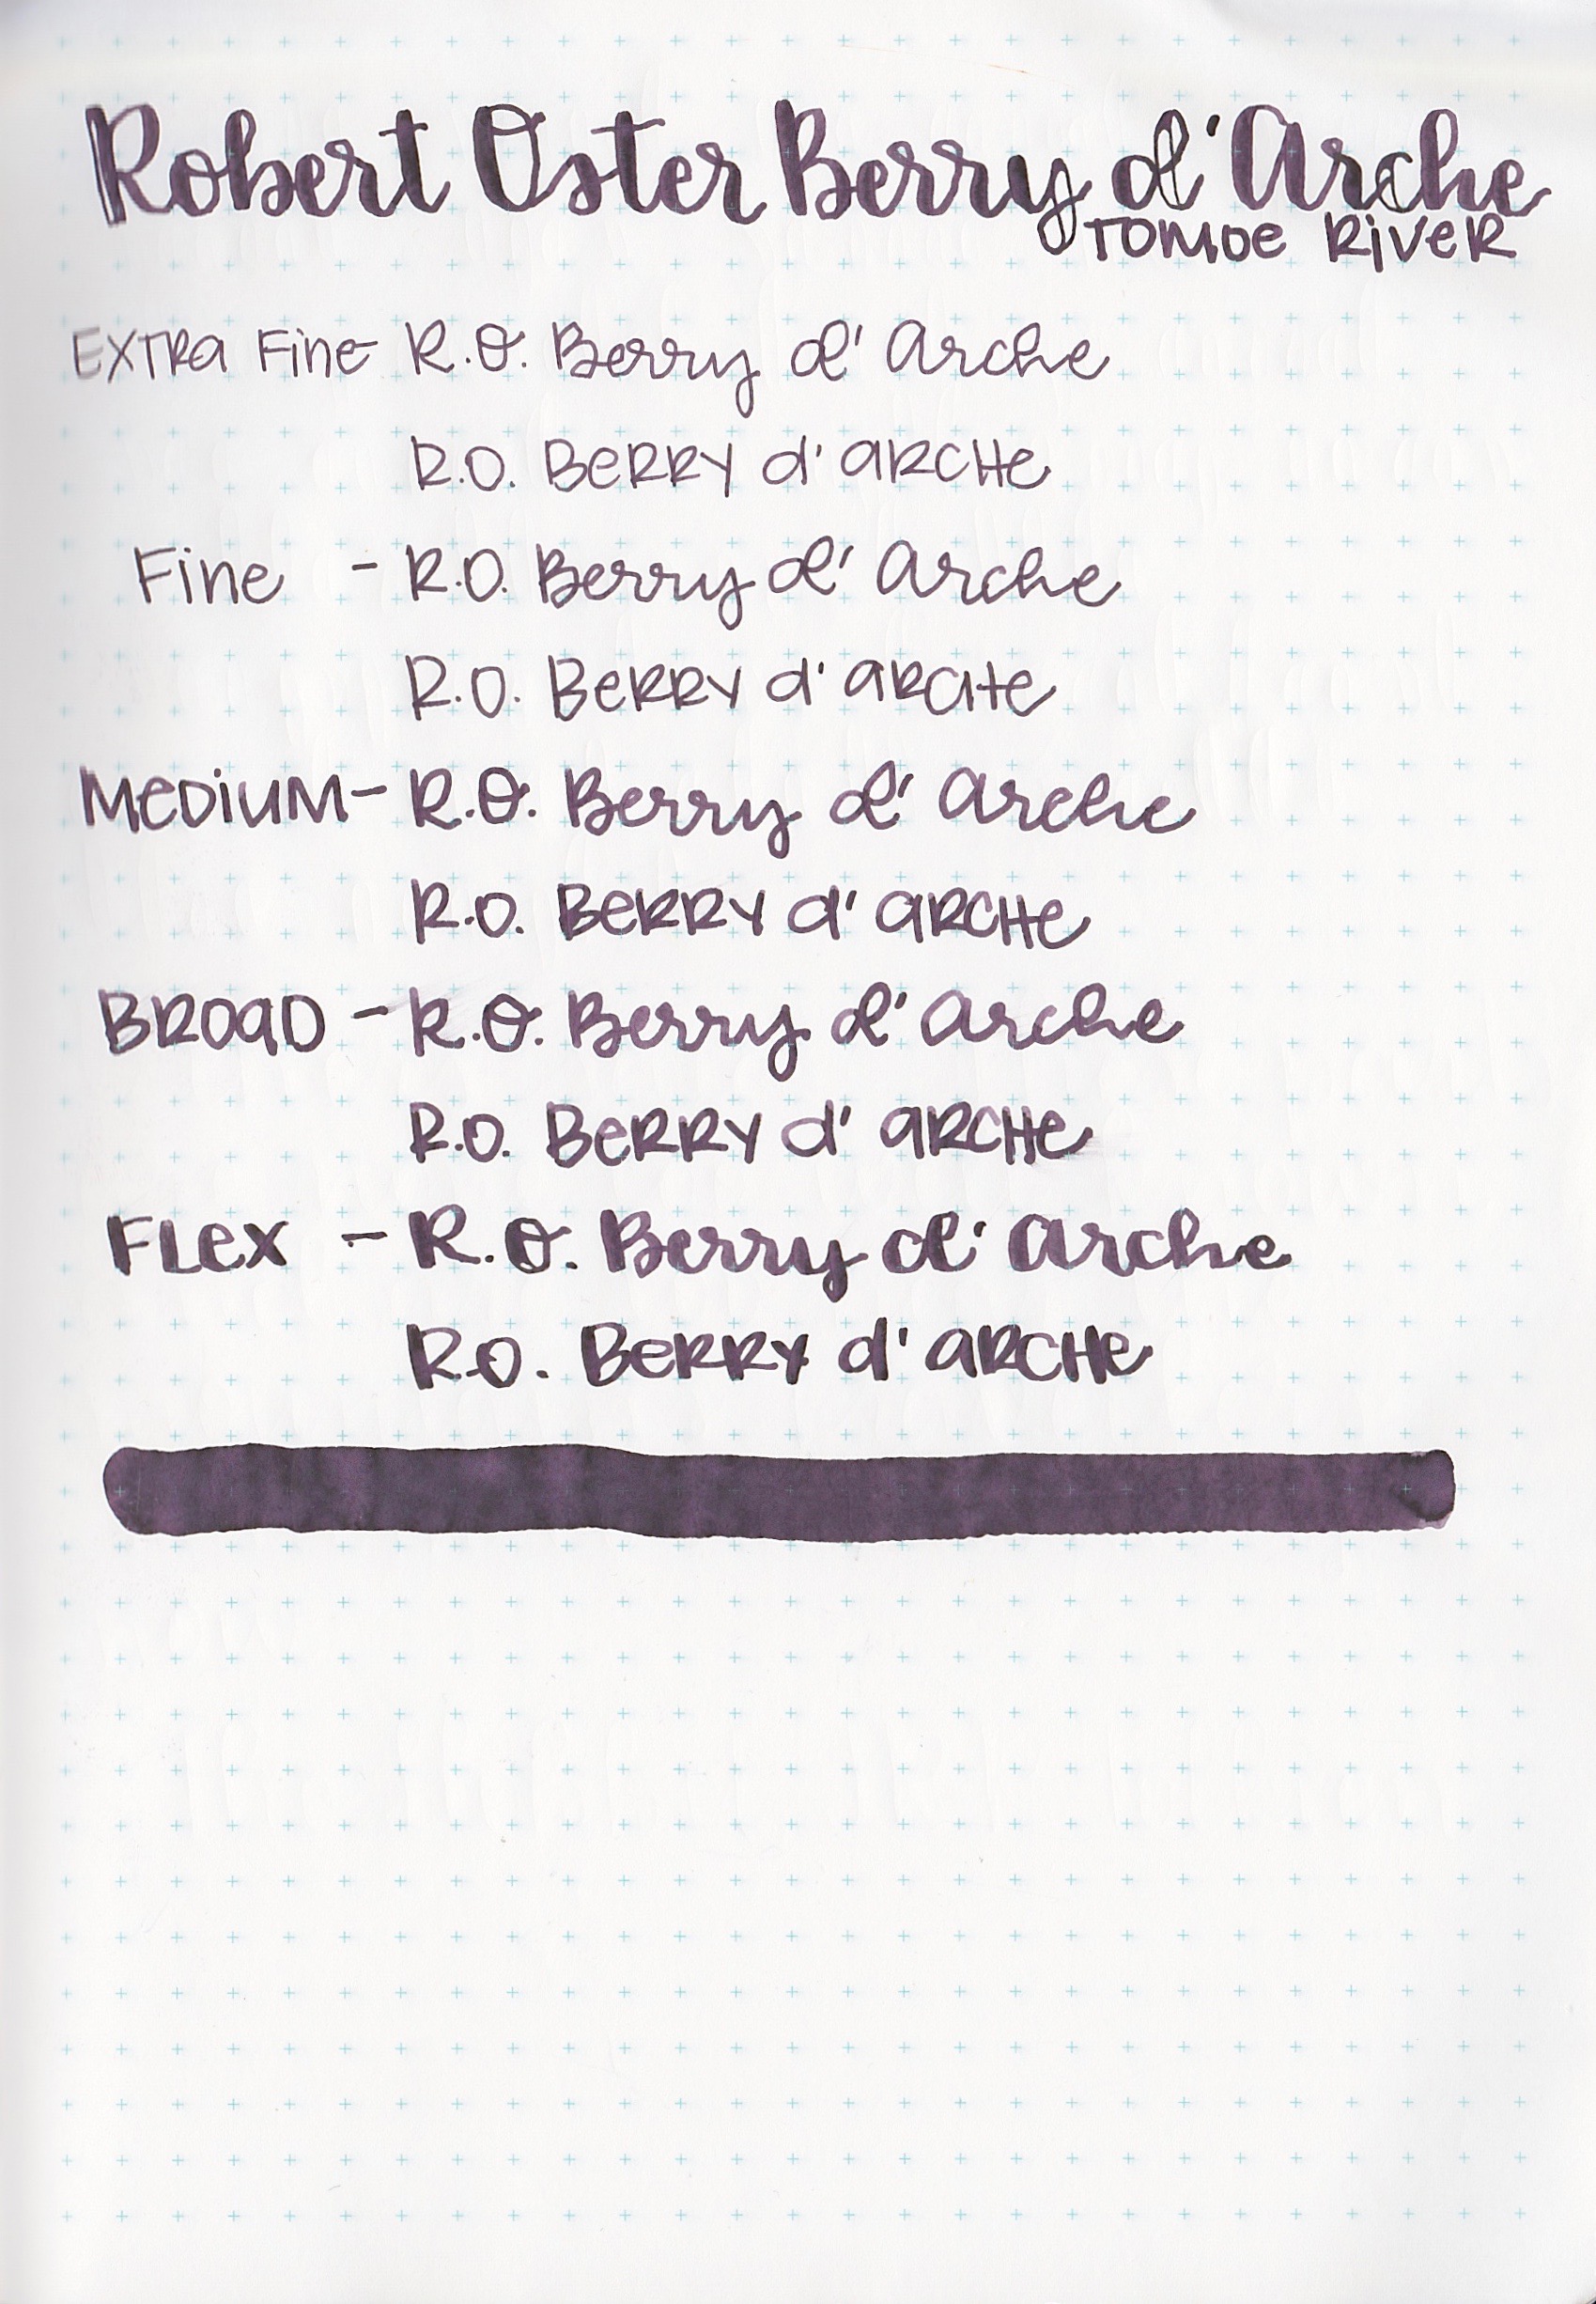 Robert Oster Berry d'Arche
Tomoe River
Extra Fine - R.O. Berry d' Arche
R.O. Berry d' Arche
Fine - R.O. Berry d' Arche
R.O. Berry d' Arche
Medium - R.O. Berry d' Arche
R.O. Berry d' Arche
Broad - R.O. Berry d' Arche
R.O. Berry d' Arche
Flex - R.O. Berry d' Arche
R.O. Berry d' Arche